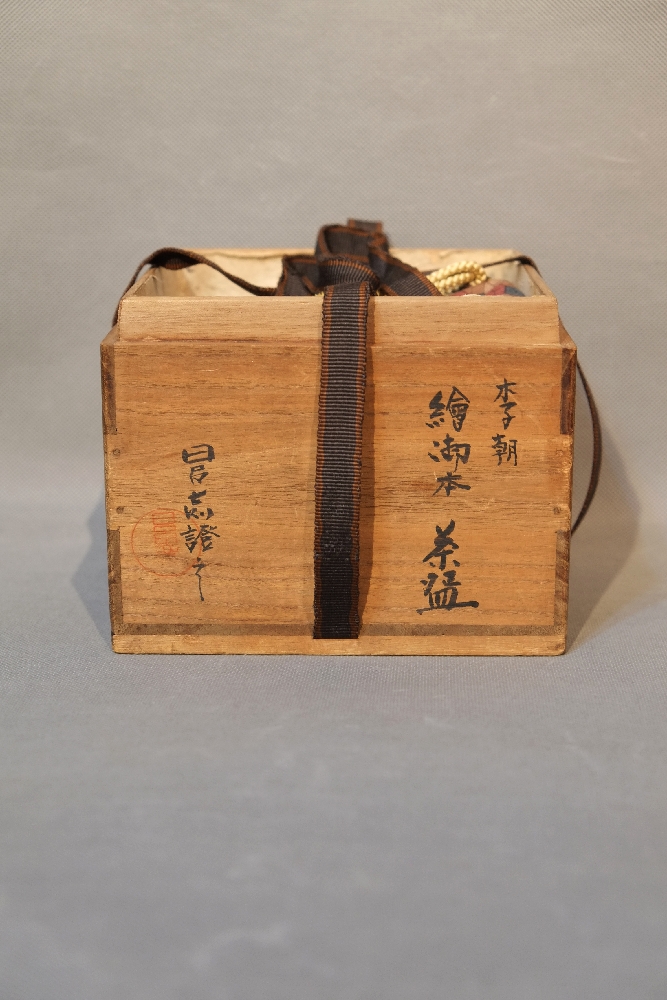 李朝
繪御本 茶盌
志證之